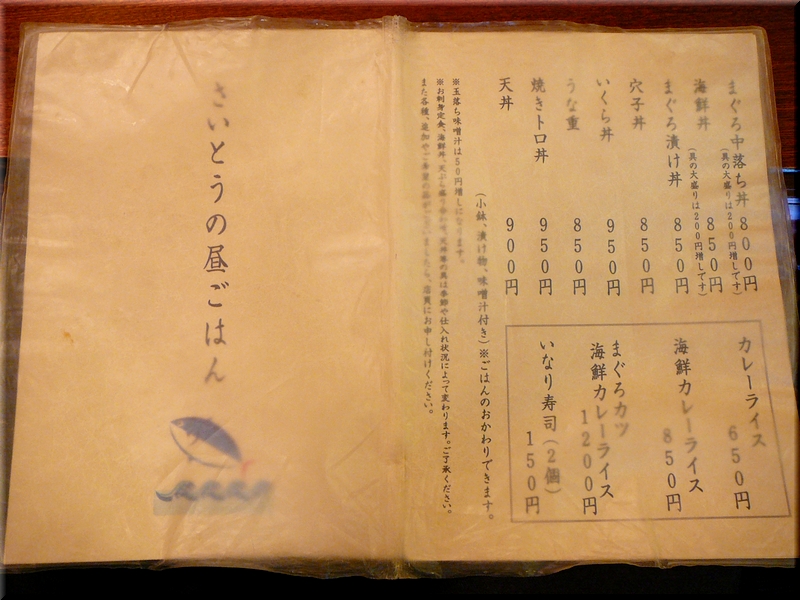 まぐろ中落ち丼 800円
(具の大盛りは200円増しです)
海鮮丼 850円
(具の大盛りは200円増しです)
まぐろ漬け丼 850円
穴子丼 850円
いくら丼 950円
うな重 850円
焼きトロ丼 950円
天丼 900円
カレーライス 650円
海鮮カレーライス 850円
まぐろカツ
海鮮カレーライス 1200円
いなり寿司(2個) 150円
(小鉢、漬け物、味噌汁付き)※ごはんのおかわりできます。
※玉落ち味噌汁は50円増しになります。
※お刺身定食、海鮮丼、天ぷら盛り合わせ、天丼等の具は季節や仕入れ状況によって変わります。ご了承ください。
また各種、追加やご希望の品がございましたら、店員にお申し付けください。
さいとうの昼ごはん